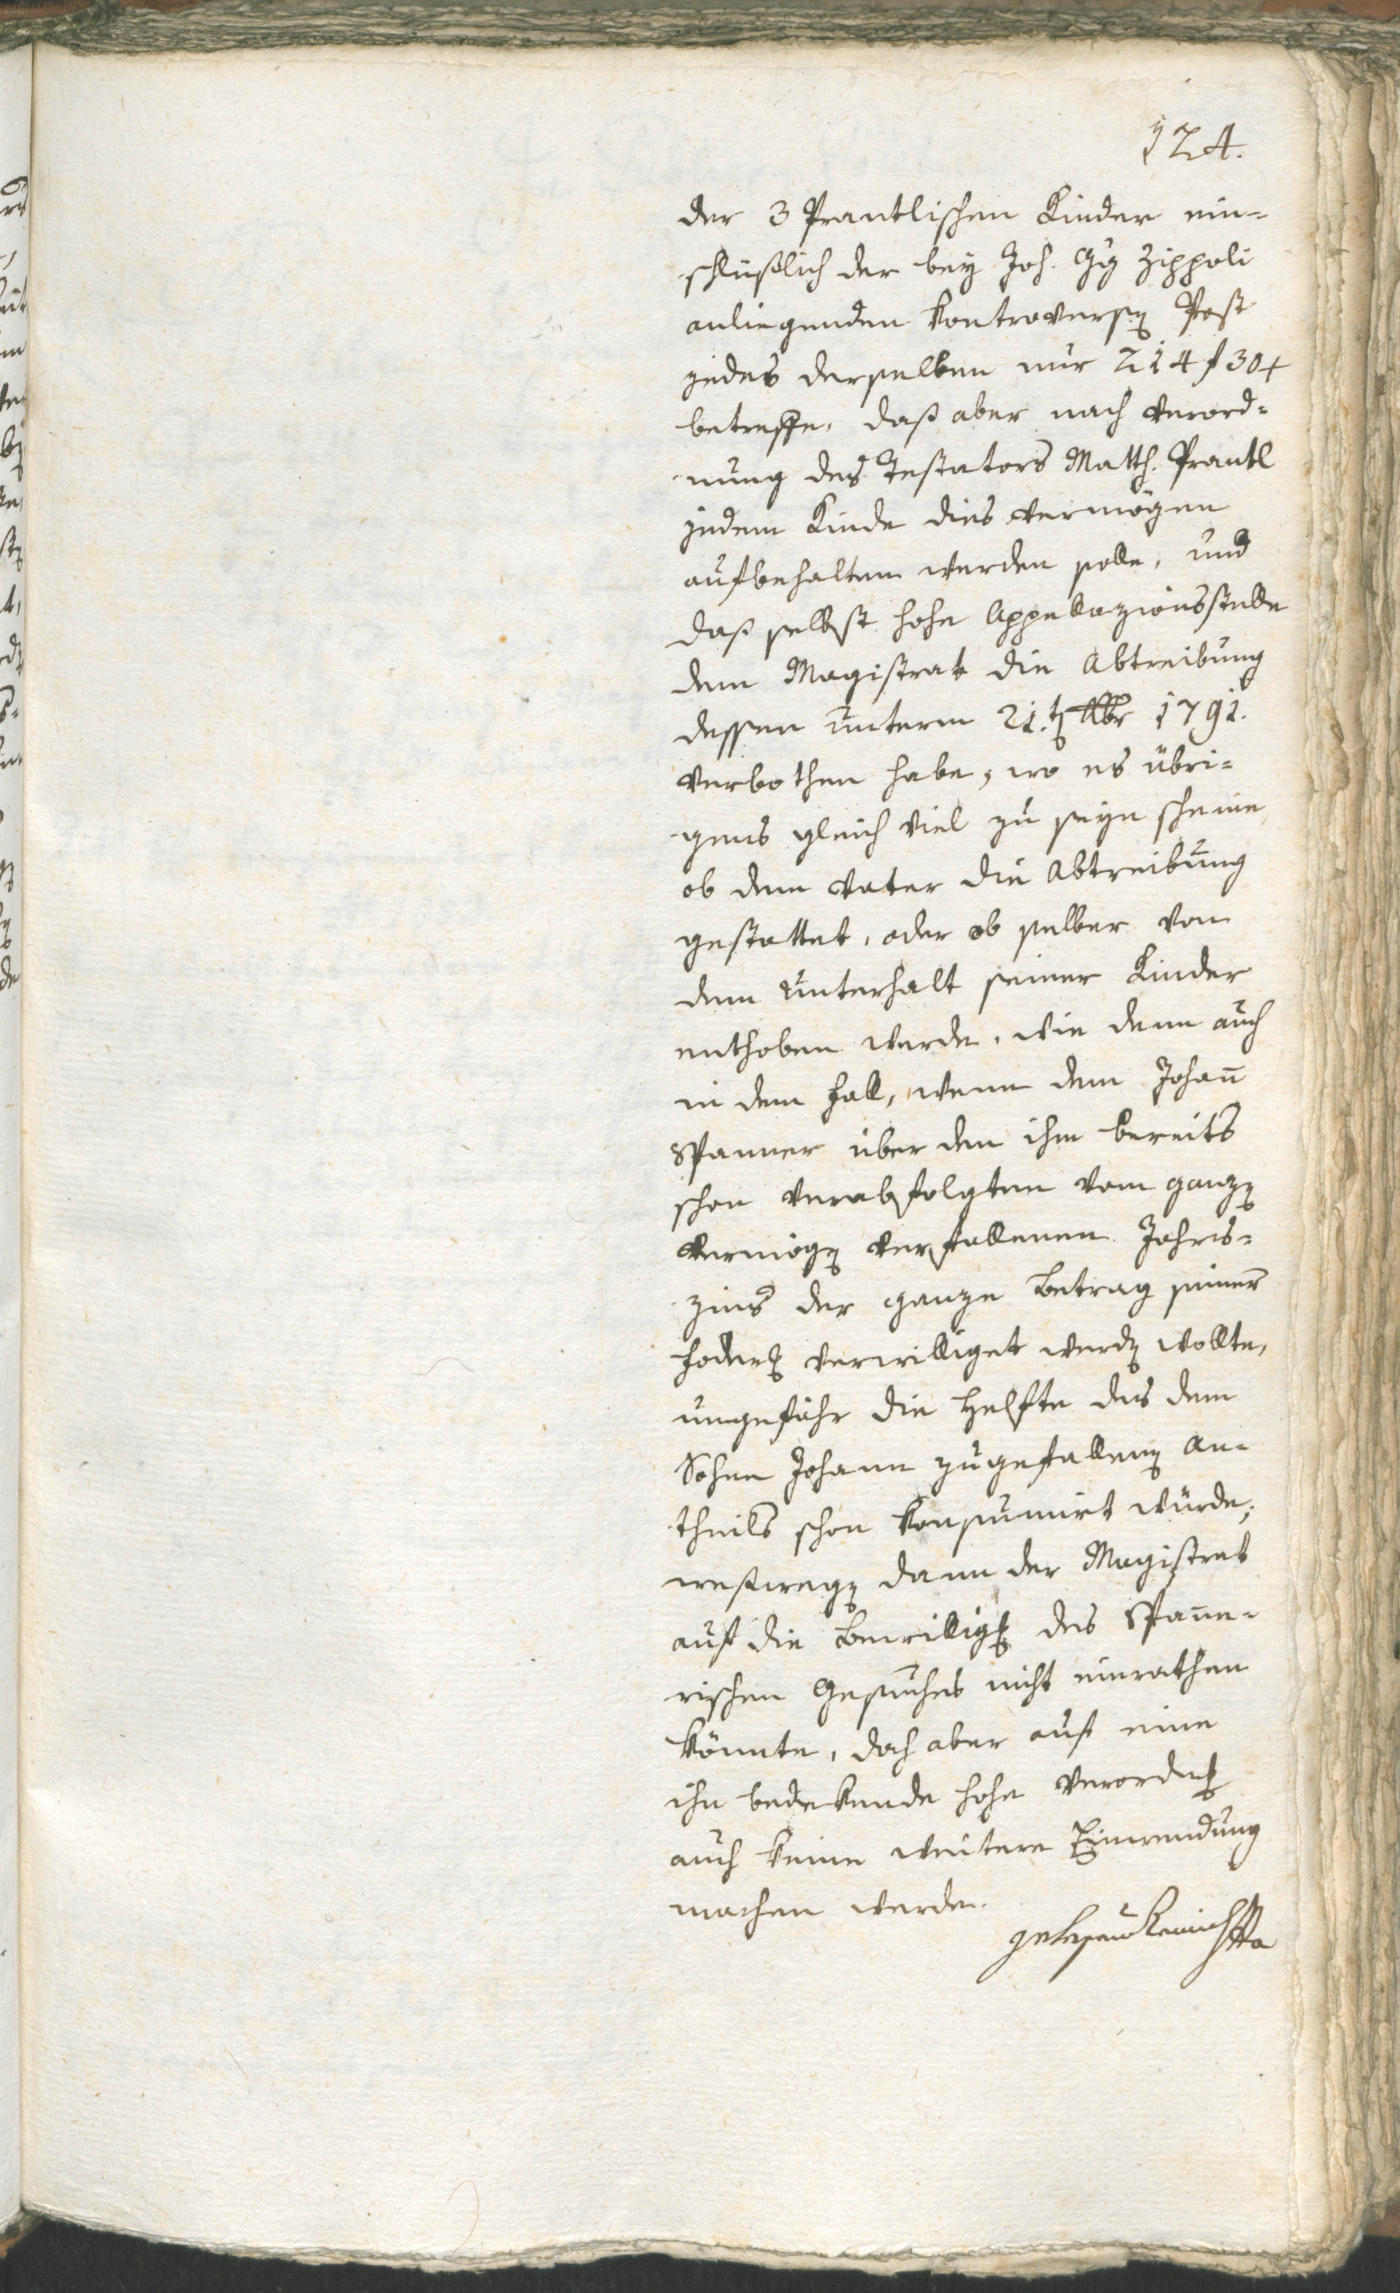 124.
der 3 Prantlischen Kinder ein-
schlüßlich der bey Joh. Gg Zippoli
anliegenden Kontroversen Post
jedes derselben nur 214 f 30 x
betreffe, daß aber nach Verord-
nung des Testators Matth. Prantl
jedem Kinde dies Vermögen
aufbehalten werden solle, und
daß selbst hohe Appellazionsstelle
dem Magistrat die Abtreibung
dessen unterm 21.ten 1791.
verbothen habe, wo es übri-
gens gleich viel zu seyn scheine
ob dem Vater die Abtreibung
gestattet, oder ob selber von
dem Unterhalt seiner Kinder
enthoben werde, wie dann auch
in dem Fall, wenn dem Johann
Spanner über den ihm bereits
schon verabfolgten vom ganzen
Vermögen verfallenen Jahrs-
zins der ganze Betrag seiner
Foderung verwilliget werden wollte,
ungefähr die Helfte des dem
Sohne Johann zugefallenen An-
theils schon konsumirt würde;
weßwegen dann der Magistrat
auf die Bewilligung des Spanne-
rischen Gesuches nicht einrathen
könnte, doch aber auf eine
ihn bedekende hohe Verordnung
auch keine weitere Einwendung
machen werde.